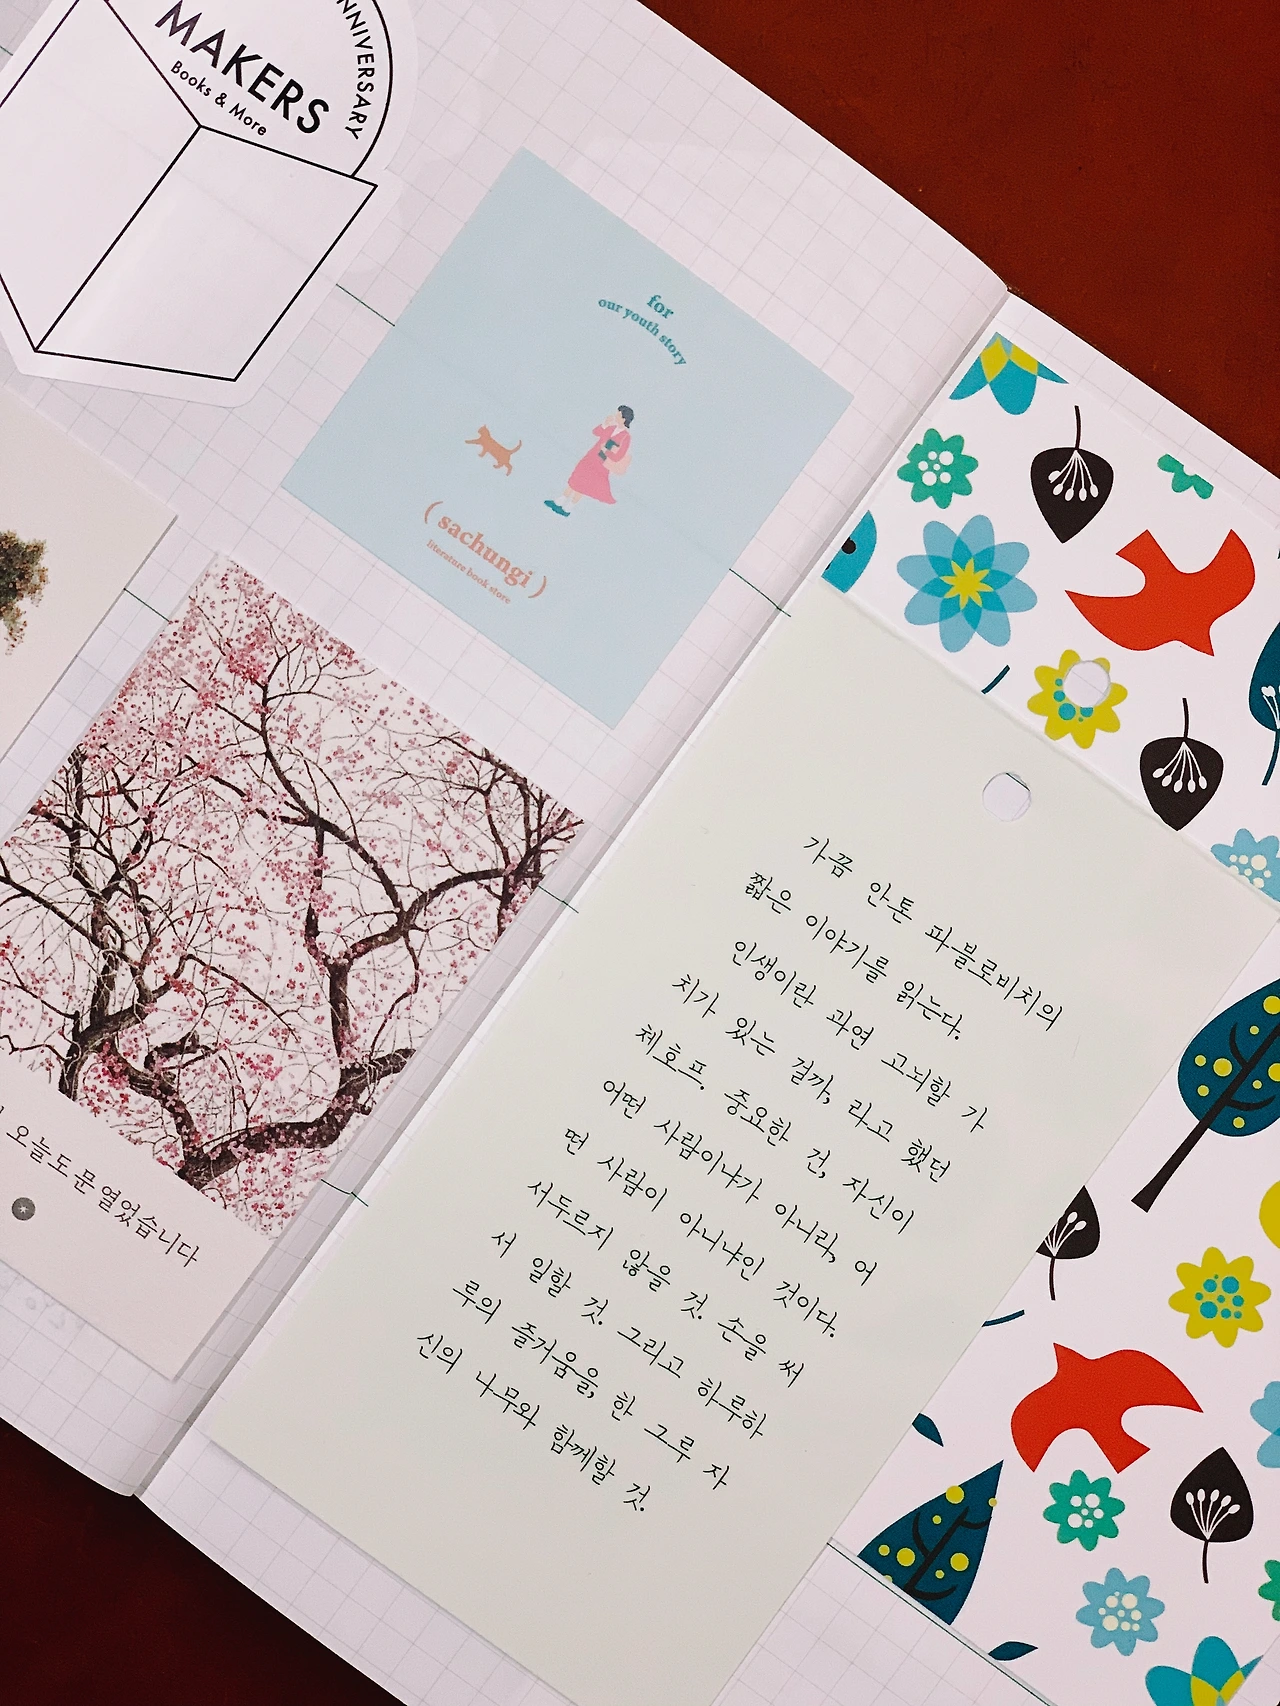 NNIVERSARY
MAKERS
Books & More
for
our youth story
( sachungi )
literature book store
오늘도 문 열었습니다
가끔 안톤 파블로비치의
짧은 이야기를 읽는다.
인생이란 과연 고뇌할 가
치가 있는 걸까, 라고 했던
체호프. 중요한 건, 자신이
어떤 사람이냐가 아니라, 어
떤 사람이 아니냐인 것이다.
서두르지 않을 것. 손을 써
서 일할 것. 그리고 하루하
루의 즐거움을, 한 그루 자
신의 나무와 함께할 것.